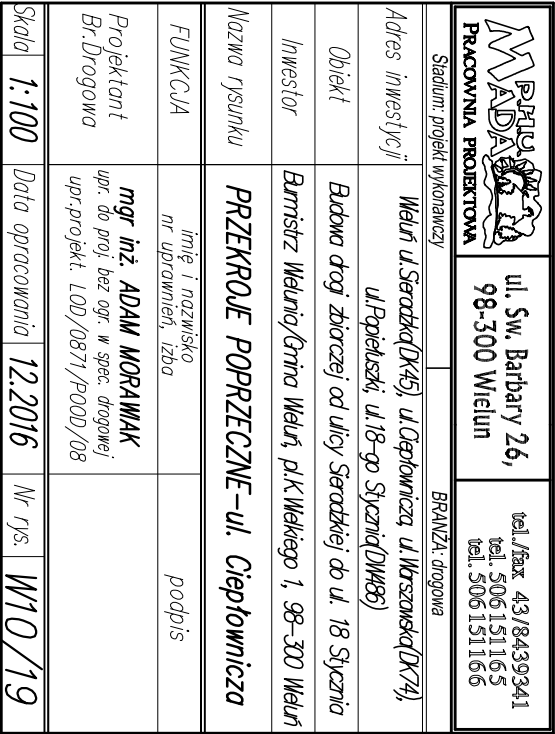 P.H.U.
MADA
PRACOWNIA PROJEKTOWA
ul. Św. Barbary 26,
98-300 Wieluń
tel./fax 43/8439341
tel. 506151165
tel. 506151166
Stadium: projekt wykonawczy
BRANŻA: drogowa
Adres inwestycji
Wieluń ul.Sieradzka(DK45), ul.Ciepłownicza, ul.Warszawska(DK74),
ul.Popiełuszki, ul.18-go Stycznia(DW486)
Obiekt
Budowa drogi zbiorczej od ulicy Sieradzkiej do ul. 18 Stycznia
Inwestor
Burmistrz Wielunia/Gmina Wieluń, pl.K.Wielkiego 1, 98-300 Wieluń
Nazwa rysunku
PRZEKROJE POPRZECZNE-ul. Ciepłownicza
FUNKCJA
imię i nazwisko
nr uprawnień, izba
podpis
Projektant
Br.Drogowa
mgr inż. ADAM MORAWIAK
upr. do proj. bez ogr. w spec. drogowej
upr.projekt. LOD/0871/POOD/08
Skala
1:100
Data opracowania
12.2016
Nr rys.
W10/19